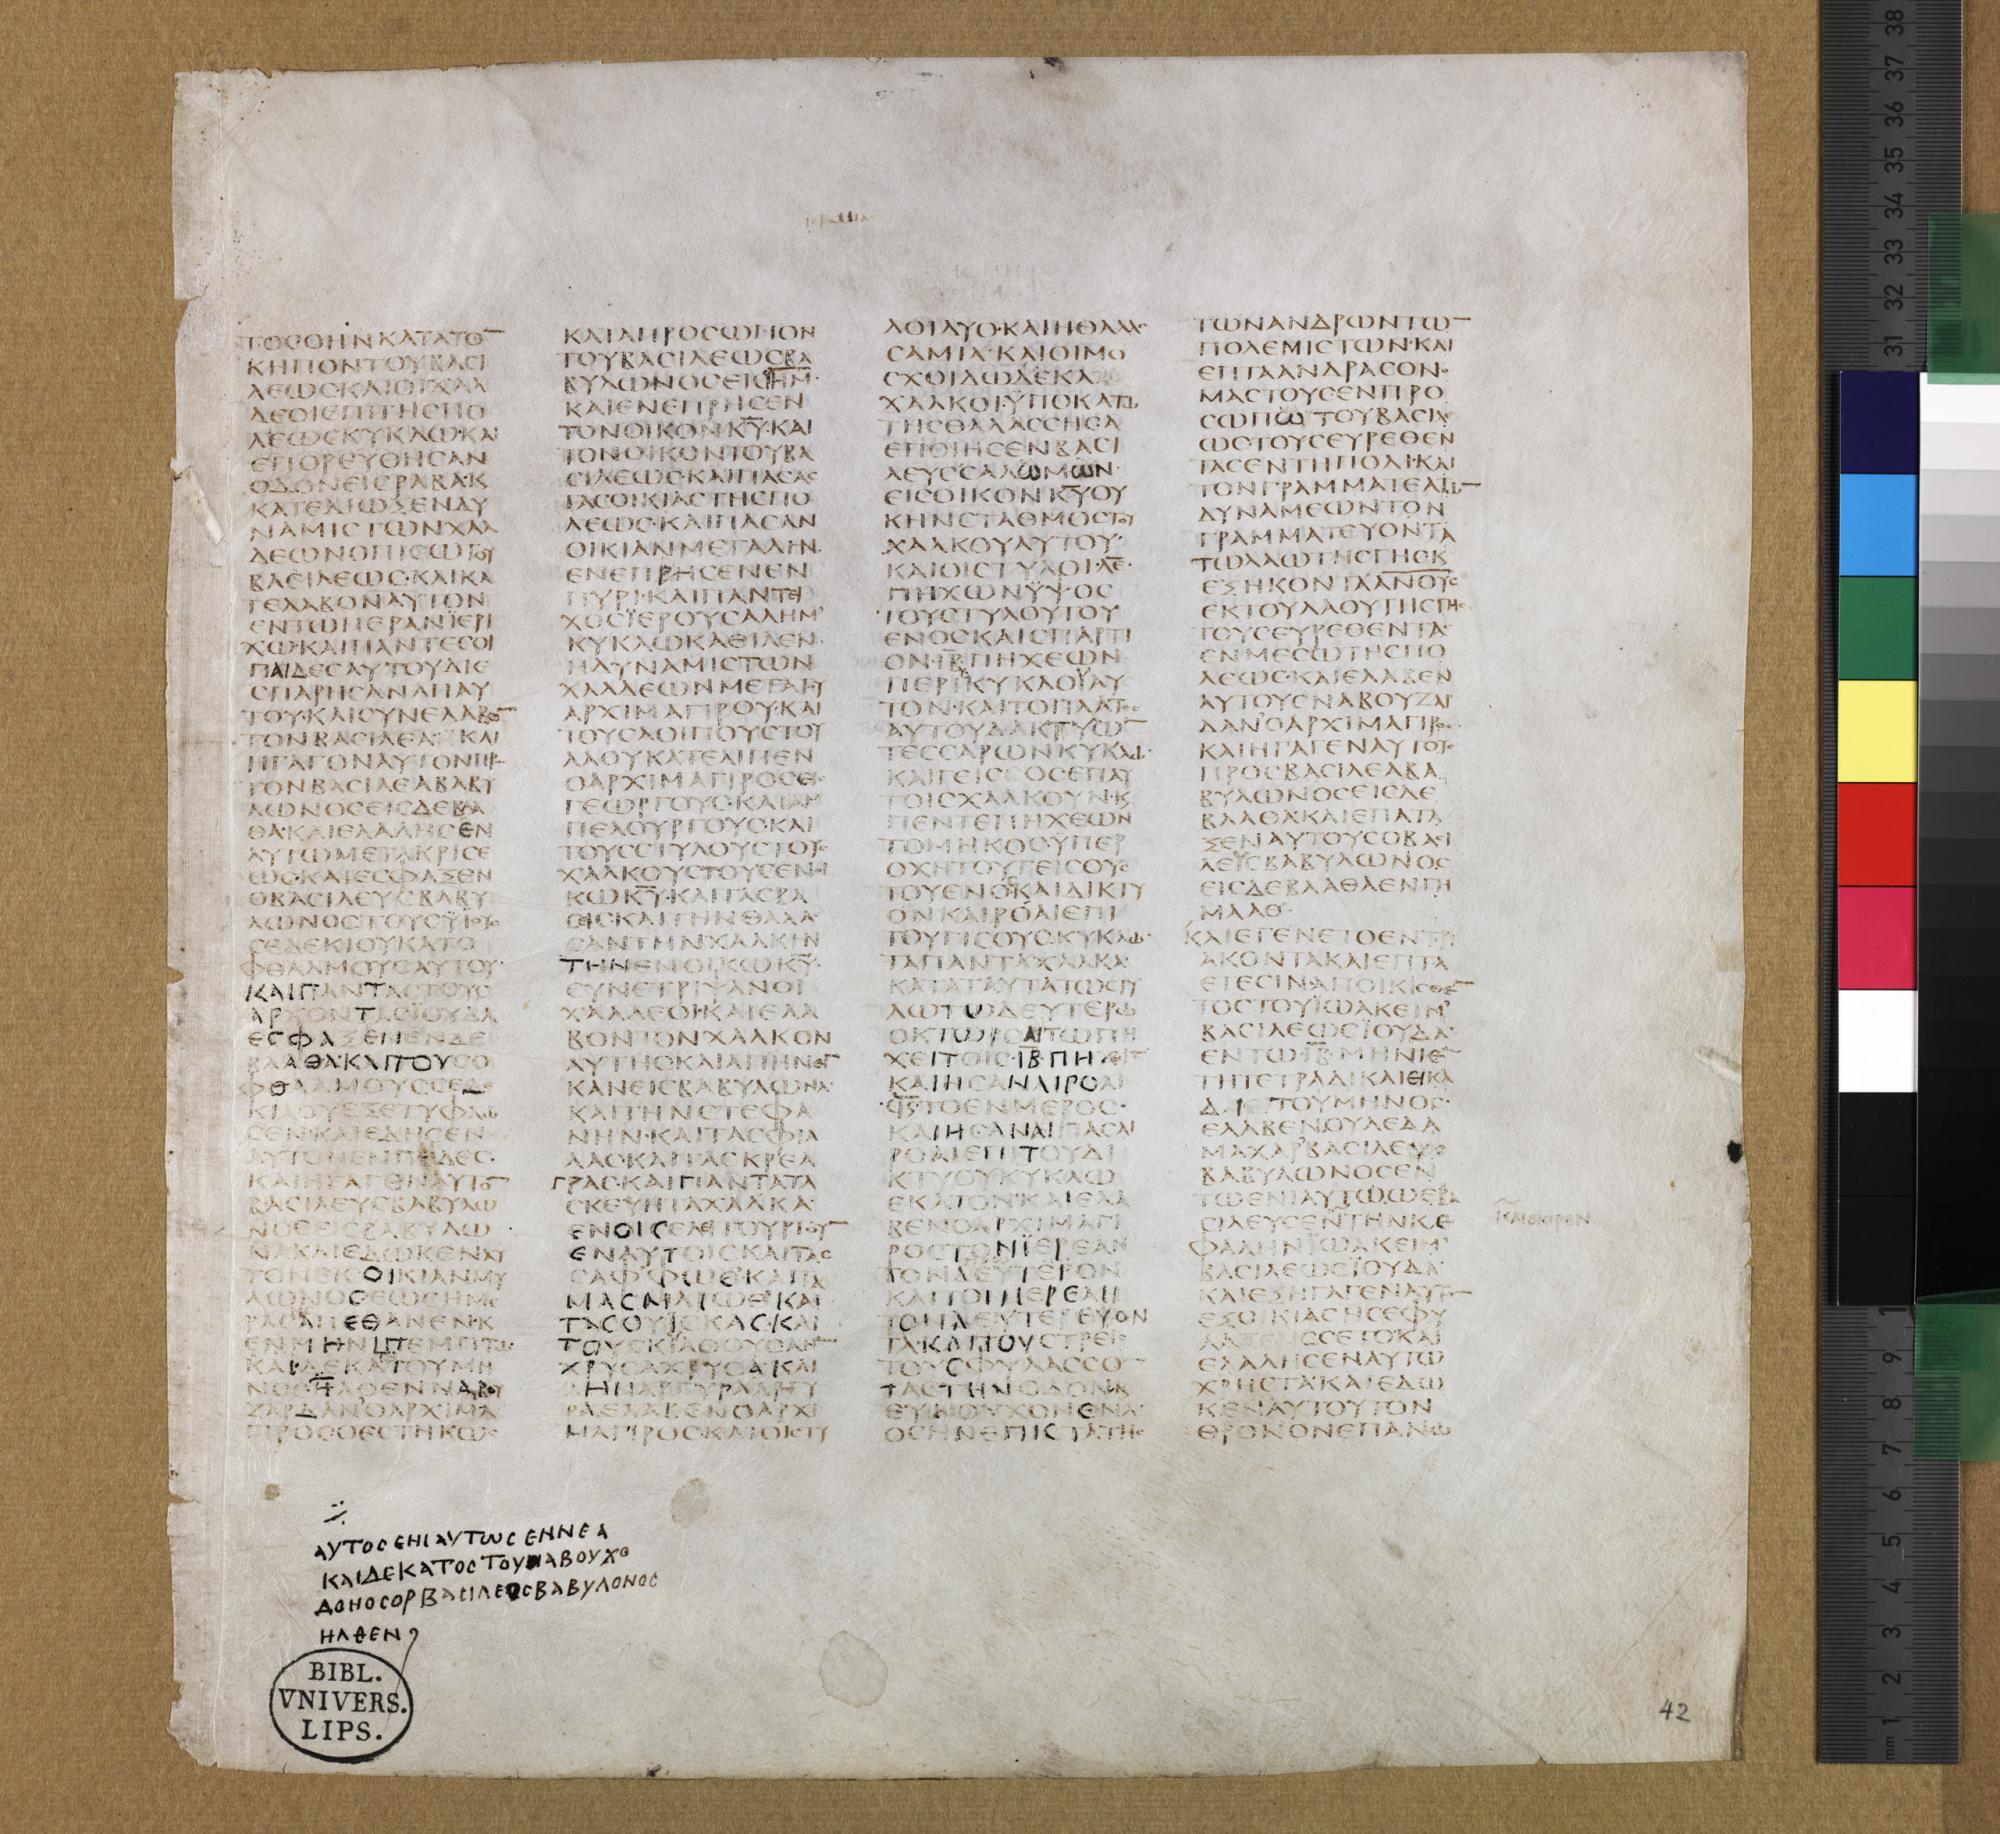 ΤΟϹΟΗΝΚΑΤΑΤΟ
ΚΗΠΟΝΤΟΥΒΑϹΙ
ΛΕΩϹΚΑΙΟΙΧΑΛ
ΔΕΟΙΕΠΙΤΗϹΠΟ
ΛΕΩϹΚΥΚΛΩΚΑΙ
ΕΠΟΡΕΥΘΗϹΑΝ
ΟΔΟΝΕΙϹΡΑΒΑΚ
ΚΑΤΕΔΙΩΞΕΝΔΥ
ΝΑΜΙϹΤΩΝΧΑΛ
ΔΕΩΝΟΠΙϹΩΤΟΥ
ΒΑϹΙΛΕΩϹ·ΚΑΙΚΑ
ΤΕΛΑΒΟΝΑΥΤΟΝ
ΕΝΤΩΠΕΡΑΝΪΕΡΙ
ΧΩ·ΚΑΙΠΑΝΤΕϹΟΙ
ΠΑΙΔΕϹΑΥΤΟΥΔΙΕ
ϹΠΑΡΗϹΑΝΑΠΑΥ
ΤΟΥ·ΚΑΙϹΥΝΕΛΑΒΟ
ΤΟΝΒΑϹΙΛΕΑ·ΚΑΙ
ΗΓΑΓΟΝΑΥΤΟΝΠΡ
ΤΟΝΒΑϹΙΛΕΑΒΑΒΥ
ΛΩΝΟϹΕΙϹΔΕΒΛΑ
ΘΑ·ΚΑΙΕΛΑΛΗϹΕΝ
ΑΥΤΩΜΕΤΑΚΡΙϹΕ
ΩϹ·ΚΑΙΕϹΦΑΞΕΝ
ΟΒΑϹΙΛΕΥϹΒΑΒΥ
ΛΩΝΟϹΤΟΥϹΫΪΟΥϹ
ϹΕΔΕΚΙΟΥΚΑΤΟ
ΦΘΑΛΜΟΥϹΑΥΤΟΥ·
ΚΑΙΠΑΝΤΑϹΤΟΥϹ
ΑΡΧΟΝΤΑϹΪΟΥΔΑ
ΕϹΦΑΞΕΝΕΝΔΕ
ΒΛΑΘΑ·ΚΑΙΤΟΥϹΟ
ΦΘΑΛΜΟΥϹϹΕΔΕ
ΚΙΟΥΕΞΕΤΥΦΛΩ
ϹΕΝ·ΚΑΙΕΔΗϹΕΝ
ΑΥΤΟΝΕΝΠΕΔΕϹ·
ΚΑΙΗΓΑΓΕΝΑΥΤΟ
ΒΑϹΙΛΕΥϹΒΑΒΥΛΩ
ΝΟϹΕΙϹΒΑΒΥΛΩ
ΝΑΚΑΙΕΔΩΚΕΝΑΥ
ΤΟΝΕΚΟΙΚΙΑΝΜΥ
ΛΩΝΟϹΕΩϹΗΜΕ
ΡΑϹΑΠΕΘΑΝΕΝΚ
ΕΝΜΗΝΙΠΕΜΠΤΩ
ΚΑΙΔΕΚΑΤΟΥΜΗ
ΝΟϹΗΛΘΕΝΝΑΒΟΥ
ΖΑΡΔΑΝ'ΟΑΡΧΙΜΑ
ΓΙΡΟϹΟΕϹΤΗΚΩϹ
ΚΑΤΑΠΡΟϹΩΠΟΝ
ΤΟΥΒΑϹΙΛΕΩϹΒΑ
ΒΥΛΩΝΟϹΕΙϹΙΗΜ·
ΚΑΙΕΝΕΠΡΗϹΕΝ
ΤΟΝΟΙΚΟΝΚΥ·ΚΑΙ
ΤΟΝΟΙΚΟΝΤΟΥΒΑ
ϹΙΛΕΩϹ·ΚΑΙΠΑϹΑϹ
ΤΑϹΟΙΚΙΑϹΤΗϹΠΟ
ΛΕΩϹ·ΚΑΙΠΑϹΑΝ
ΟΙΚΙΑΝΜΕΓΑΛΗΝ·
ΕΝΕΠΡΗϹΕΝΕΝ
ΠΥΡΙ·ΚΑΙΠΑΝΤΕΙ
ΧΟϹΪΕΡΟΥϹΑΛΗΜ'
ΚΥΚΛΩΚΑΘΙΛΕΝ·
ΗΔΥΝΑΜΙϹΤΩΝ
ΧΑΛΔΕΩΝΜΕΤΑΤΟΥ
ΑΡΧΙΜΑΓΙΡΟΥ·ΚΑΙ
ΤΟΥϹΛΟΙΠΟΥϹΤΟΥ
ΛΑΟΥΚΑΤΕΛΙΠΕΝ
ΟΑΡΧΙΜΑΓΙΡΟϹΕΙϹ
ΓΕΩΡΓΟΥϹ·ΚΑΙΑΜ
ΠΕΛΟΥΡΓΟΥϹ·ΚΑΙ
ΤΟΥϹϹΤΥΛΟΥϹΤΟΥϹ
ΧΑΛΚΟΥϹΤΟΥϹΕΝΟΙ
ΚΩΚΥ·ΚΑΙΤΑϹΒΑ
ϹΙϹ·ΚΑΙΤΗΝΘΑΛΑϹ
ϹΑΝΤΗΝΧΑΛΚΗΝ
ΤΗΝΕΝΟΙΚΩΚΥ·
ϹΥΝΕΤΡΙΨΑΝΟΙ
ΧΑΛΔΕΟΙ·ΚΑΙΕΛΑ
ΒΟΝΤΟΝΧΑΛΚΟΝ
ΑΥΤΗϹΚΑΙΑΠΗΝΕΓ
ΚΑΝΕΙϹΒΑΒΥΛΩΝΑ·
ΚΑΙΤΗΝϹΤΕΦΑ
ΝΗΝ·ΚΑΙΤΑϹΦΙΑ
ΛΑϹ·ΚΑΙΤΑϹΚΡΕΑ
ΓΡΑϹ·ΚΑΙΠΑΝΤΑΤΑ
ϹΚΕΥΗΤΑΧΑΛΚΑ·
ΕΝΟΙϹΕΛΕΙΤΟΥΡΓΟΥ
ΕΝΑΥΤΟΙϹΚΑΙΤΑϹ
ϹΑΦ'ΦΩΘ'·ΚΑΙΤΑ
ΜΑϹΜΑΡΩΘ'ΚΑΙ
ΤΑϹ
ΤΟΥϹΚΥΑΘΟΥϹΑΝ
ΧΡΥϹΑΧΡΥϹΑ·ΚΑΙ
ΑΗΝΑΡΓΥΡΑΑΡΓΥ
ΡΑΕΛΑΒΕΝΟΑΡΧΙ
ΜΑΓΙΡΟϹ·ΚΑΙΟΙϹΤΥ
ΛΟΙΔΥΟ·ΚΑΙΗΘΑΛΑϹ
ϹΑΜΙΑ·ΚΑΙΟΙΜΟ
ϹΧΟΙΔΩΔΕΚΑ
ΧΑΛΚΟΙ·ΫΠΟΚΑΤΩ
ΤΗϹΘΑΛΑϹϹΗϹΑ
ΕΠΟΙΗϹΕΝΒΑϹΙ
ΛΕΥϹϹΑΛΩΜΩΝ
ΕΙϹΟΙΚΟΝΚΥΟΥ
ΚΗΝϹΤΑΘΜΟϹΤΟΥ
ΧΑΛΚΟΥΑΥΤΟΥ·
ΚΑΙΟΙϹΤΥΛΟΙ·ΛΕ·
ΠΗΧΩΝΫΨΟϹ
ΤΟΥϹΤΥΛΟΥΤΟΥ
ΕΝΟϹΚΑΙϹΠΑΡΤΙ
ΟΝ·ΙΒ·ΠΗΧΕΩΝ
ΠΕΡΙΚΥΚΛΟΥΑΥ
ΤΟΝ·ΚΑΙΤΟΠΑΧΟϹ
ΑΥΤΟΥΔΑΚΤΥΛΩ
ΤΕϹϹΑΡΩΝΚΥΚΛΩ·
ΚΑΙΓΕΙϹϹΟϹΕΠΑΥ
ΤΟΙϹΧΑΛΚΟΥΝ·Κ
ΠΕΝΤΕΠΗΧΕΩΝ
ΤΟΜΗΚΟϹΫΠΕΡ
ΟΧΗΤΟΥΓΕΙϹΟΥϹ
ΤΟΥΕΝΟϹΚΑΙΔΙΚΤΥ
ΟΝΚΑΙΡΟΑΙΕΠΙ
ΤΟΥΓΙϹΟΥϹ·ΚΥΚΛΩ·
ΤΑΠΑΝΤΑΧΑΛΚΑ·
ΚΑΤΑΤΑΥΤΑΤΩϹΤΥ
ΛΩΤΩΔΕΥΤΕΡΩ
ΟΚΤΩΡΟΑΙΤΩΠΗ
ΧΕΙΤΟΙϹ·ΙΒ·ΠΗΧΕϹΙ
ΚΑΙΗϹΑΝΑΙΡΟΑΙ
·ϤϚ·ΤΟΕΝΜΕΡΟϹ·
ΚΑΙΗϹΑΝΑΙΠΑϹΑΙ
ΡΟΑΙΕΠΙΤΟΥΔΙ
ΚΤΥΟΥΚΥΚΛΩ
ΕΚΑΤΟΝ·ΚΑΙΕΛΑ
ΒΕΝΟΑΡΧΙΜΑΓΙ
ΡΟϹΤΟΝΪΕΡΕΑΝ
ΤΟΝΔΕΥΤΕΡΟΝ
ΚΑΙΤΟΝΪΕΡΕΑΝ
ΤΟΝΔΕΥΤΕΡΕΥΟΝ
ΤΑ·ΚΑΙΤΟΥϹΤΡΕΙϹ
ΤΟΥϹΦΥΛΑϹϹΟ
ΤΑϹΤΗΝΟΔΟΝ·Κ
ΕΥΝΟΥΧΟΝΕΝΑ·
ΟϹΗΝΕΠΙϹΤΑΤΗϹ
ΤΩΝΑΝΔΡΩΝΤΩ
ΠΟΛΕΜΙϹΤΩΝ·ΚΑΙ
ΕΠΤΑΑΝΔΡΑϹΟΝΟ
ΜΑϹΤΟΥϹΕΝΠΡΟ
ϹΩΠΩΤΟΥΒΑϹΙΛΕ
ΩϹΤΟΥϹΕΥΡΕΘΕΝ
ΤΑϹΕΝΤΗΠΟΛΙ·ΚΑΙ
ΤΟΝΓΡΑΜΜΑΤΕΑΤΩ
ΔΥΝΑΜΕΩΝΤΟΝ
ΓΡΑΜΜΑΤΕΥΟΝΤΑ
ΤΩΛΑΩΤΗϹΓΗϹΚ
ΕΞΗΚΟΝΤΑΑΝΟΥϹ
ΕΚΤΟΥΛΑΟΥΤΗϹΓΗϹ
ΤΟΥϹΕΥΡΕΘΕΝΤΑϹ
ΕΝΜΕϹΩΤΗϹΠΟ
ΛΕΩϹ·ΚΑΙΕΛΑΒΕΝ
ΑΥΤΟΥϹΝΑΒΟΥΖΑΡ
ΔΑΝ'ΟΑΡΧΙΜΑΓΙΡΟϹ
ΚΑΙΗΓΑΓΕΝΑΥΤΟΥϹ
ΠΡΟϹΒΑϹΙΛΕΑΒΑ
ΒΥΛΩΝΟϹΕΙϹΔΕ
ΒΛΑΘΑΚΑΙΕΠΑΤΑ
ΞΕΝΑΥΤΟΥϹΟΒΑϹΙ
ΛΕΥϹΒΑΒΥΛΩΝΟϹ
ΕΙϹΔΕΒΛΑΘΑΕΝΓΗ
ΜΑΑΘ·
ΚΑΙΕΓΕΝΕΤΟΕΝΤΡΙ
ΑΚΟΝΤΑΚΑΙΕΠΤΑ
ΕΤΕϹΙΝΑΠΟΙΚΙϹΘΕ
ΤΟϹΤΟΥΪΩΑΚΕΙΜ'
ΒΑϹΙΛΕΩϹΪΟΥΔΑ·
ΕΝΤΩ·ΙΒ·ΜΗΝΙΕ
ΤΗΤΕΤΡΑΔΙΚΑΙΕΙΚΑ
ΔΙΤΟΥΜΗΝΟϹ·
ΕΛΑΒΕΝΟΥΛΕΔΑ
ΜΑΧΑΡ'ΒΑϹΙΛΕΥϹ
ΒΑΒΥΛΩΝΟϹΕΝ
ΤΩΕΝΙΑΥΤΩΩΕΒΑ
ϹΙΛΕΥϹΕΝΤΗΝΚΕ
ΦΑΛΗΝΪΩΑΚΕΙΜ'
ΒΑϹΙΛΕΩϹΪΟΥΔΑ·
ΚΑΙΕΞΗΓΑΓΕΝΑΥΤΟ
ΕΞΟΙΚΙΑϹΗϹΕΦΥ
ΛΑΤΤΕΤΟ·ΚΑΙ
ΕΛΑΛΗϹΕΝΑΥΤΩ
ΧΡΗϹΤΑ·ΚΑΙΕΔΩ
ΚΕΝΑΥΤΟΥΤΟΝ
ΘΡΟΝΟΝΕΠΑΝΩ
ΑΥΤΟϹΕΝΙΑΥΤΩϹΕΝΝΕΑ
ΚΑΙΔΕΚΑΤΟϹΤΟΥΝΑΒΟΥΧΟ
ΔΟΝΟϹΟΡΒΑϹΙΛΕΟϹΒΑΒΥΛΟΝΟϹ
ΗΛΘΕΝ
BIBL.
VNIVERS.
LIPS.
42